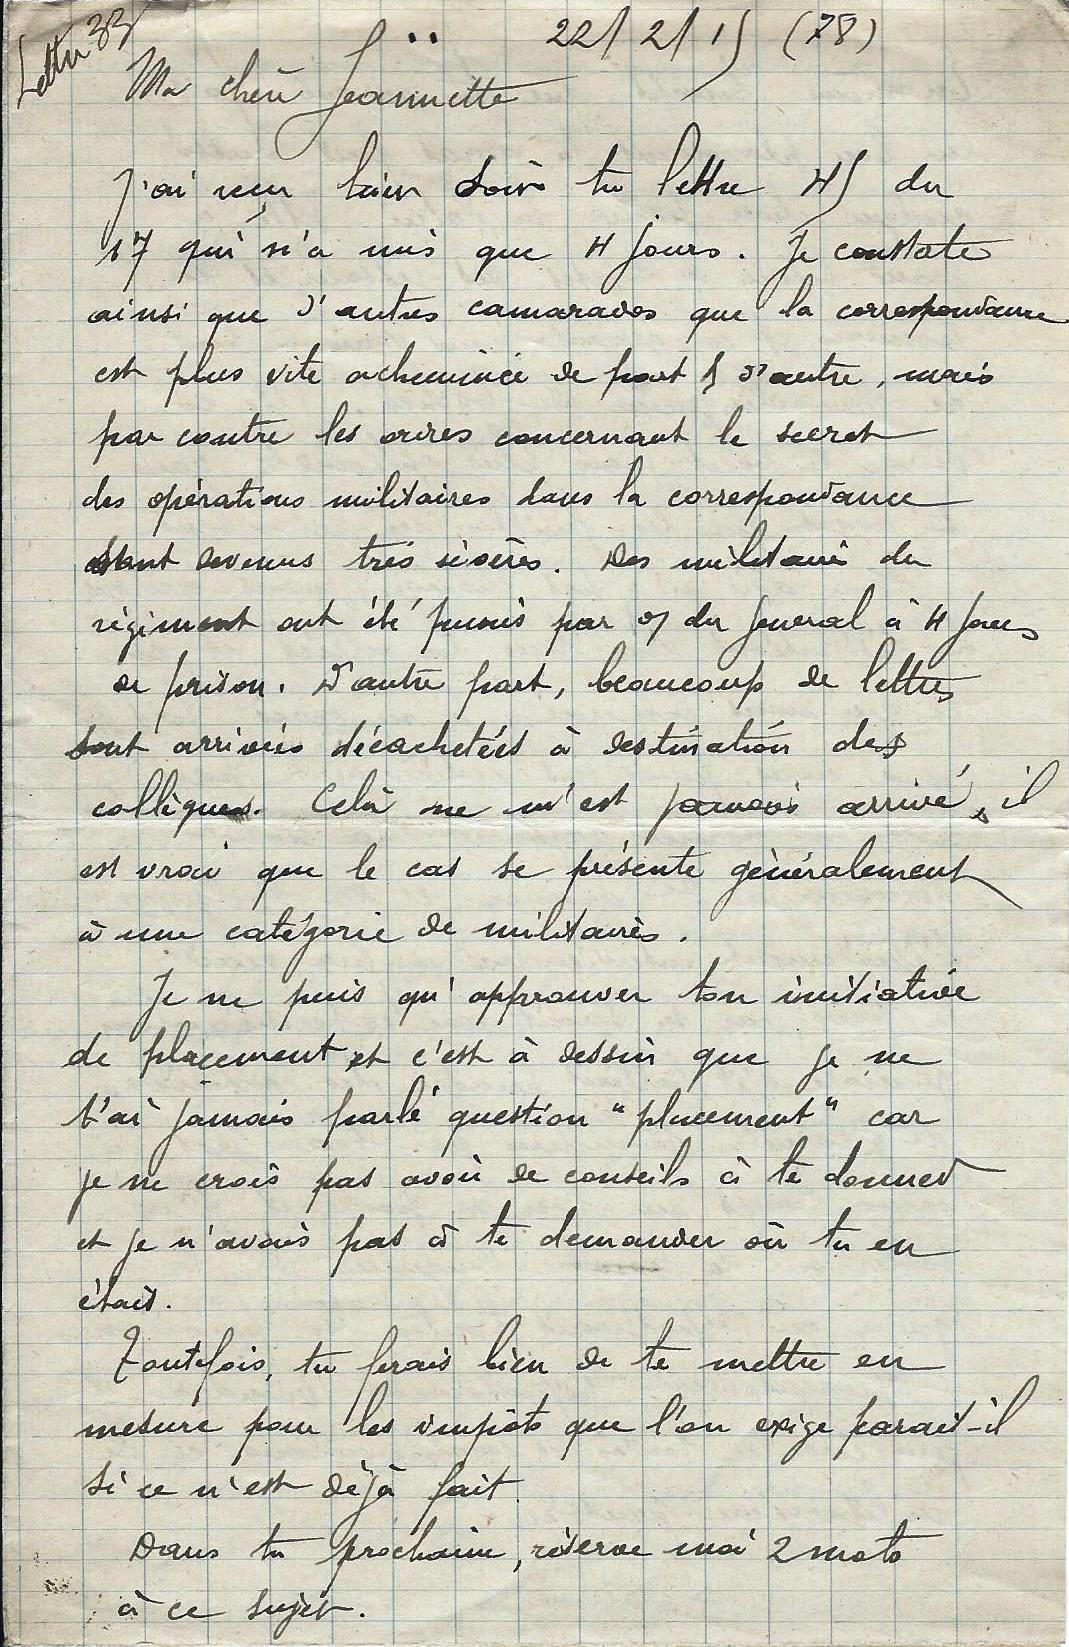 Lettre 33
22/2/15 (78)
Ma chère Jeannette
J'ai reçu hier soir ta lettre 45 du
17 qui n'a mis que 4 jours. Je constate
ainsi que d'autres camarades que la correspondance
est plus vite acheminée de part & d'autre, mais
par contre les ordres concernant le secret
des opérations militaires dans la correspondance
sont devenus très sévères. Des militaires du
régiment ont été punis par du général à 4 jours
de prison. D'autre part, beaucoup de lettres
sont arrivées décachetées à destination des
collègues. Celà ne m'est jamais arrivé, il
est vrai que le cas se présente généralement
à une catégorie de militaires.
Je ne puis qu'approuver ton initiative
de placement et c'est à dessein que je ne
t'ai jamais parlé question "placement" car
je ne crois pas avoir de conseils à te donner
et je n'avais pas à te demander où tu en
étais.
Toutefois, tu ferais bien de te mettre en
mesure pour les impôts que l'on exige parait-il
si ce n'est déjà fait.
Dans ta prochaine, réserve moi 2 mots
à ce sujet.